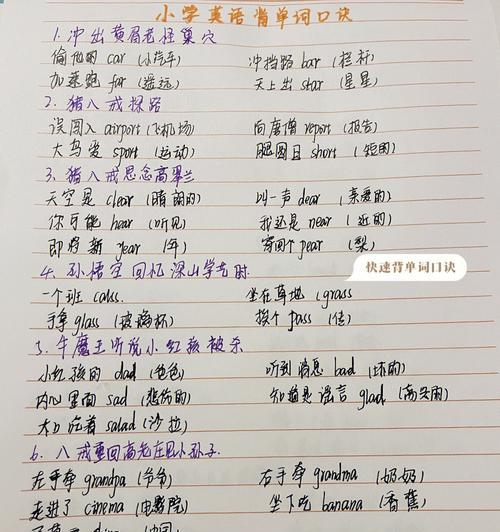 小学英语背单词口诀
1. 冲出黄眉老怪巢穴
偷他的 car (小汽车) 冲挡路 bar (栏杆)
加速跑 far (遥远) 天上出 star (星星)
2. 猪八戒探路
误闯入 airport (飞机场) 向唐僧 report (报告)
大鸟爱 sport (运动) 腿圆且 short (短的)
3. 猪八戒思念高翠兰
天空是 clear (晴朗的) 叫一声 dear (亲爱的)
你可能 hear (听见) 我还是 near (近的)
即将新 year (年) 寄回个 pear (梨)
快速背单词口诀
4. 孙悟空回忆深山学艺时
一个班 calss. 坐在草地 (grass
手拿 glass (玻璃杯) 挨个 pass (传)
5. 牛魔王听说小红孩被杀
小红孩的 dad (爸爸) 听到消息 bad (坏的)
内心里面 sad (悲伤的) 知道是谣言 glad (高兴的)
大口吃着 salad (沙拉)
6. 八戒重回高老庄见小孙子.
左手牵 grandpa (爷爷) 右手牵 grandma (奶奶)
走进了 cinema (电影院) 坐下吃 banana (香蕉)